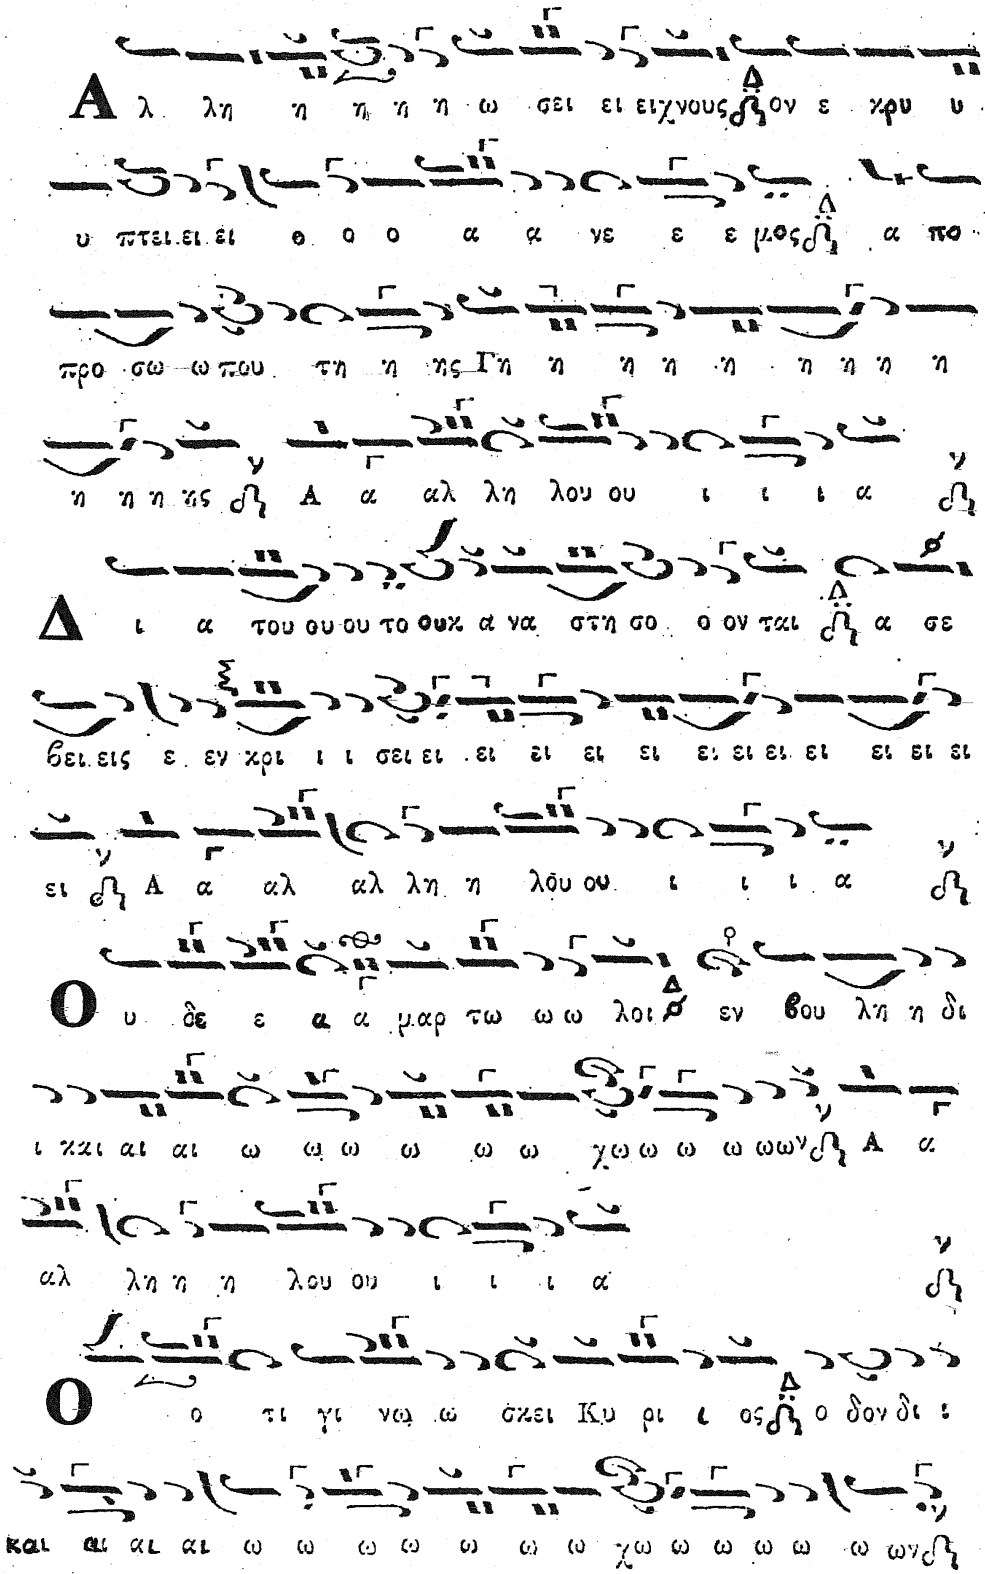 Α λ λη η η η η ω σει ει ειχνους ον ε κρυ υ
υ πτει ει ει ο ο ο α α νε ε ε μος α πο
προ σω ω που τη η ης Γη η η η η η η η η
η η η ης Α α αλ λη λου ου ι ι ι α
Δ ι α του ου ου το ουκ α να στη σο ο ον ται α σε
βει εις ε εν κρι ι ι σει ει ει ει ει ει ει ει ει ει ει ει ει
ει Α α αλ αλ λη η λου ου ι ι ι α
Ο υ δε ε α α μαρ τω ω ω λοι εν βου λη η δι
ι και αι αι ω ω ω ω ω ω χω ω ω ω ωων Α α
αλ λη η η λου ου ι ι ι α
Ο ο τι γι νω ω σκει Κυ ρι ι ος ο δον δι ι
και αι αι αι ω ω ω ω ω ω ω χω ω ω ω ω ω ων